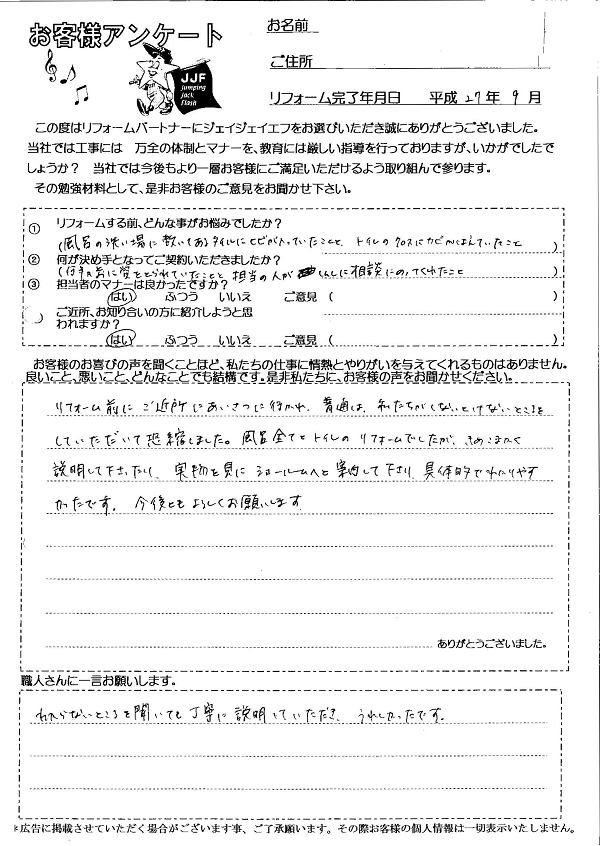 お客様アンケート
JJF
Jumping
Jack
Flash
お名前
ご住所
リフォーム完了年月日 平成 27 年 9 月
この度はリフォームパートナーにジェイジェイエフをお選びいただき誠にありがとうございました。
当社では工事には 万全の体制とマナーを、教育には厳しい指導を行っておりますが、いかがでしたで
しょうか? 当社では今後もより一層お客様にご満足いただけるよう取り組んで参ります。
その勉強材料として、是非お客様のご意見をお聞かせ下さい。
① リフォームする前、どんな事がお悩みでしたか?
(風呂の洗い場に敷いてあるタイルにヒビが入っていたことと、トイレのクロスにカビがはえていたこと)
② 何が決め手となってご契約いただきましたか?
(何年も前に 担当の人が しんしに相談にのってくれたこと)
③ 担当者のマナーは良かったですか?
はい ふつう いいえ ご意見 ( )
ご近所、お知り合いの方に紹介しようと思
われますか?
はい ふつう いいえ ご意見 ( )
お客様のお喜びの声を聞くことほど、私たちの仕事に情熱とやりがいを与えてくれるものはありません。
良いこと、悪いこと、どんなことでも結構です。是非私たちに、お客様の声をお聞かせください。
リフォーム前に ご近所にあいさつに行かれ、普通は、私たちがしないといけないところを
していただいて恐縮しました。風呂全てとトイレの リフォームでしたが、きめこまかく
説明して下さったり、実物を見に ショールームへと案内して下さり、具体的でわかりやす
かったです。 今後とも よろしくお願いします
ありがとうございました。
職人さんに一言お願いします。
わからないところを聞いても 丁寧に 説明していただき、うれしかったです。
*広告に掲載させていただく場合がございます事、ご了承願います。その際お客様の個人情報は一切表示いたしません。